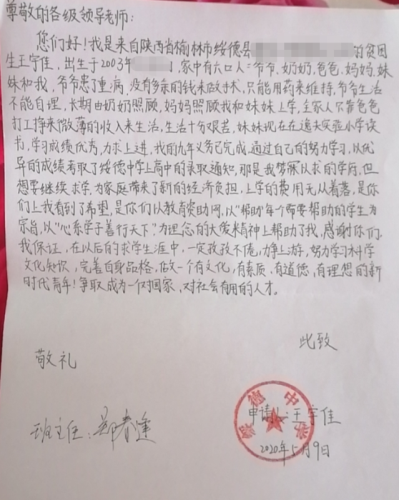 尊敬的各级领导老师:
您们好!我是来自陕西省榆林市绥德县 的贫困
生王宇佳,出生于2003年 ,家中有六口人:爷爷、奶奶、爸爸、妈妈、妹
妹和我,爷爷患了重病,没有多余的钱来做手术,只能用药来维持,爷爷生活
不能自理,长期由奶奶照顾,妈妈照顾我和妹妹上学,全家人只靠爸爸
打工挣来微薄的收入来生活,生活十分艰苦,妹妹现在在 实验小学读
书,学习成绩优秀,力求上进,我的九年义务已完成,通过自己的努力学习,以优
异的成绩考取了绥德中学上高中的录取通知,那是我梦寐以求的学府,但
想要继续求学,为家庭带来了新的经济负担,上学的费用无从着落,是你
们让我看到了希望,是你们从教育资助网,以"帮助每个需要帮助的学生为
宗旨,以"心系学子善行天下"为理念的大爱精神上帮助了我,感谢你们,
我保证,在以后的求学生涯中,一定孜孜不倦,力争上游,努力学习科学
文化知识,完善自身品格,做一个有文化,有素质,有道德,有理想的新
时代青年!争取成为一个对国家,对社会有用的人才。
此致
敬礼
申请人:王宇佳
班主任: 
2020年5月9日
绥德中学